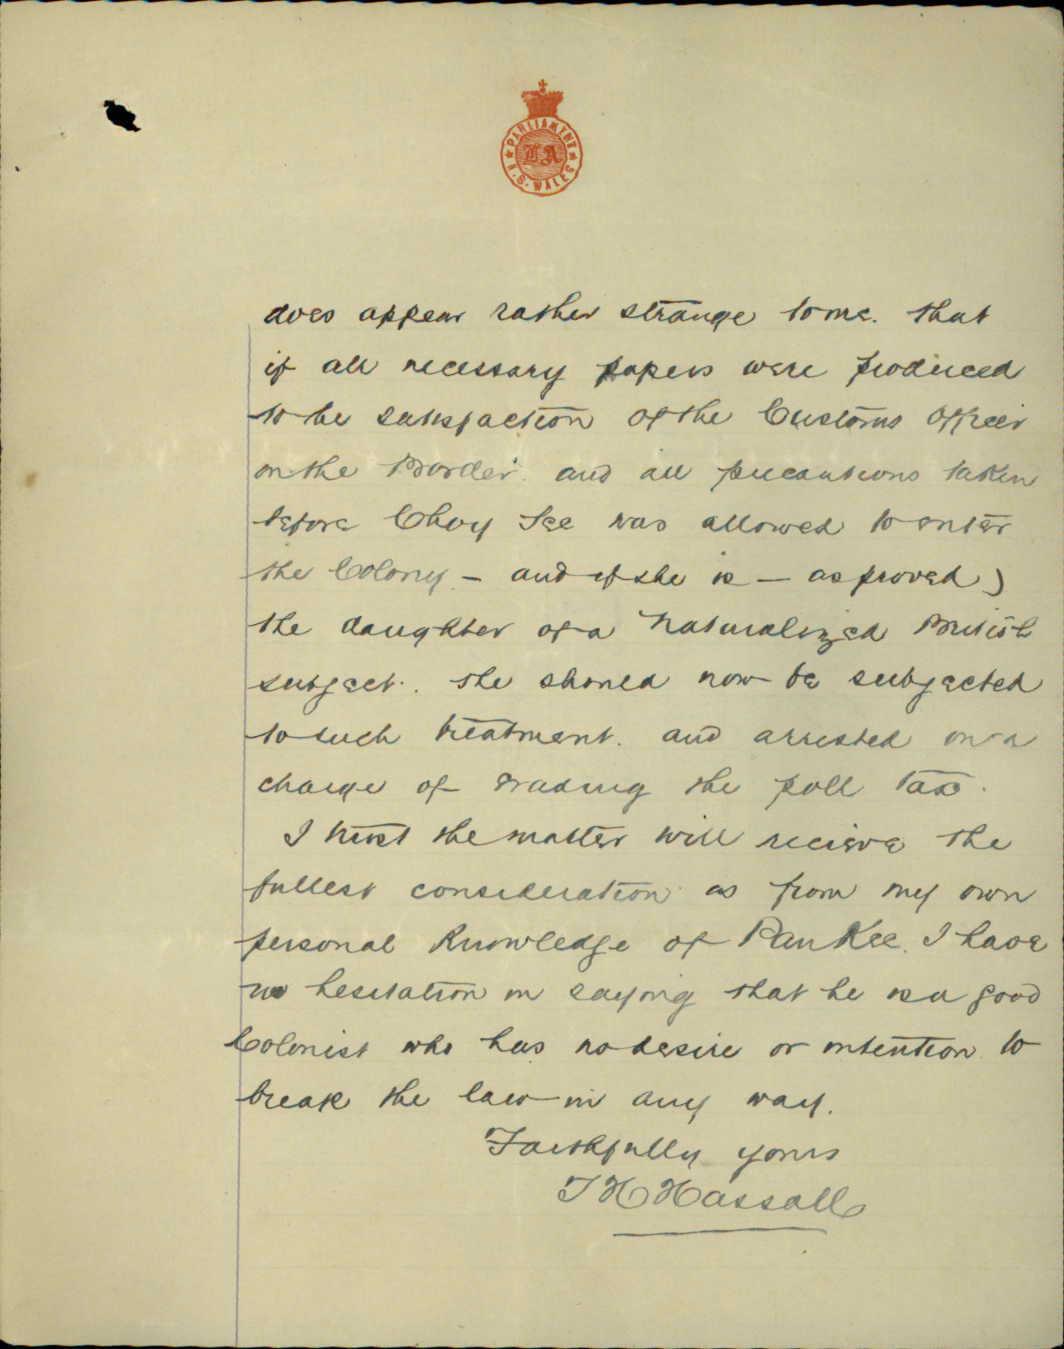 PARLIAMENT
L A
N. S. WALES
does appear rather strange to me. that
if all necessary papers were produced
to the satisfaction of the Customs Officer
on the Border. and all precautions taken
before Choy See was allowed to enter
the Colony - and if she is - as proved)
the daughter of a Naturalized British
subject. she should now be subjected
to such treatment. and arrested on a
charge of evading the poll tax.
I trust the matter will recieve the
fullest consideration as from my own
personal knowledge of Pan Kee. I have
no hesitation in saying that he is a good
Colonist who has no desire or intention to
break the law in any way.
Faithfully yours
T H Hassall